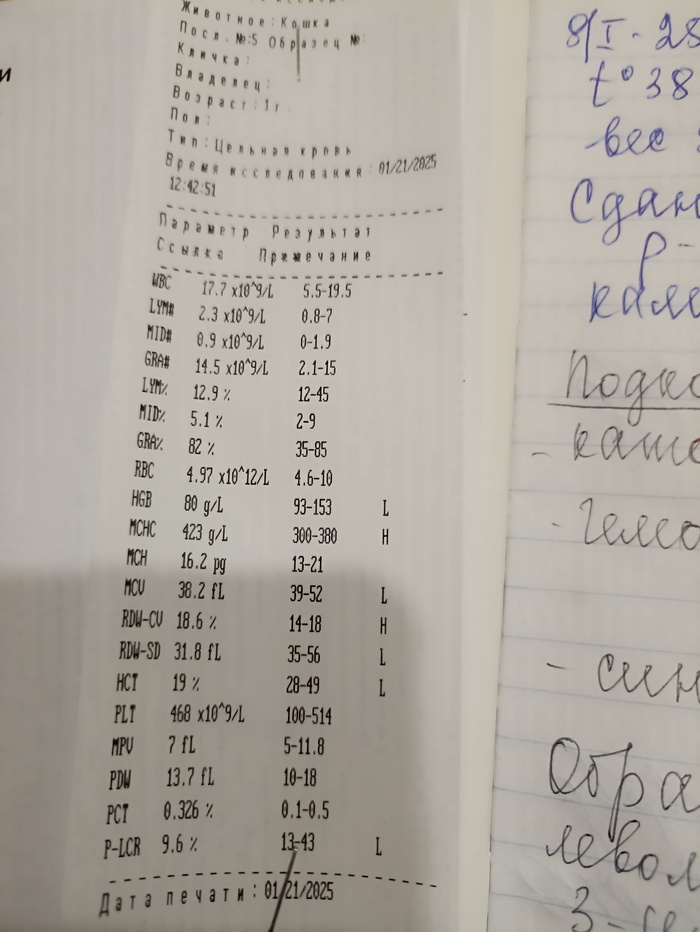 Животное:Кошка
Посл.№:5 Образец №:
Кличка:
Владелец:
Возраст:1г
Пол:
Тип:Цельная кровь
Время исследования:01/21/2025
12:42:51
Параметр Результат
Ссылка Примечание
WBC 17.7 x10^9/L 5.5-19.5
LYM# 2.3 x10^9/L 0.8-7
MID# 0.9 x10^9/L 0-1.9
GRA# 14.5 x10^9/L 2.1-15
LYM% 12.9 % 12-45
MID% 5.1 % 2-9
GRA% 82 % 35-85
RBC 4.97 x10^12/L 4.6-10
HGB 80 g/L 93-153 L
MCHC 423 g/L 300-380 H
MCH 16.2 pg 13-21
MCV 38.2 fL 39-52 L
RDW-CV 18.6 % 14-18 H
RDW-SD 31.8 fL 35-56 L
HCT 19 % 28-49 L
PLT 468 x10^9/L 100-514
MPV 7 fL 5-11.8
PDW 13.7 fL 10-18
PCT 0.326 % 0.1-0.5
P-LCR 9.6 % 13-43 L
Дата печати:01/21/2025
и
8/I-28
t° 38
вес
Сдан
р-
кале
Подко
- каше
- Гемо
- син
Обра
левом
3-